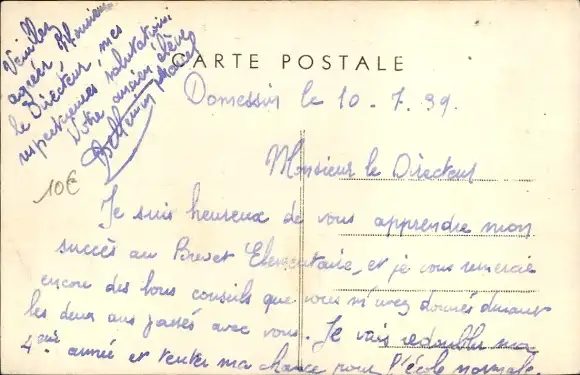 CARTE POSTALE
Domessin le 10 . 7 . 39.
Monsieur le Directeur
Je suis heureux de vous apprendre mon
succès au Brevet Elementaire, et je vous remercie
encore des bons conseils que vous m'avez donnés durant
les deux ans passés avec vous. Je vais redoubler ma
4ème année et tenter ma chance pour l'école normale.
Veuillez
agréer Monsieur
le Directeur, mes
respectueuses salutations
Votre ancien élève
Marcel
10€